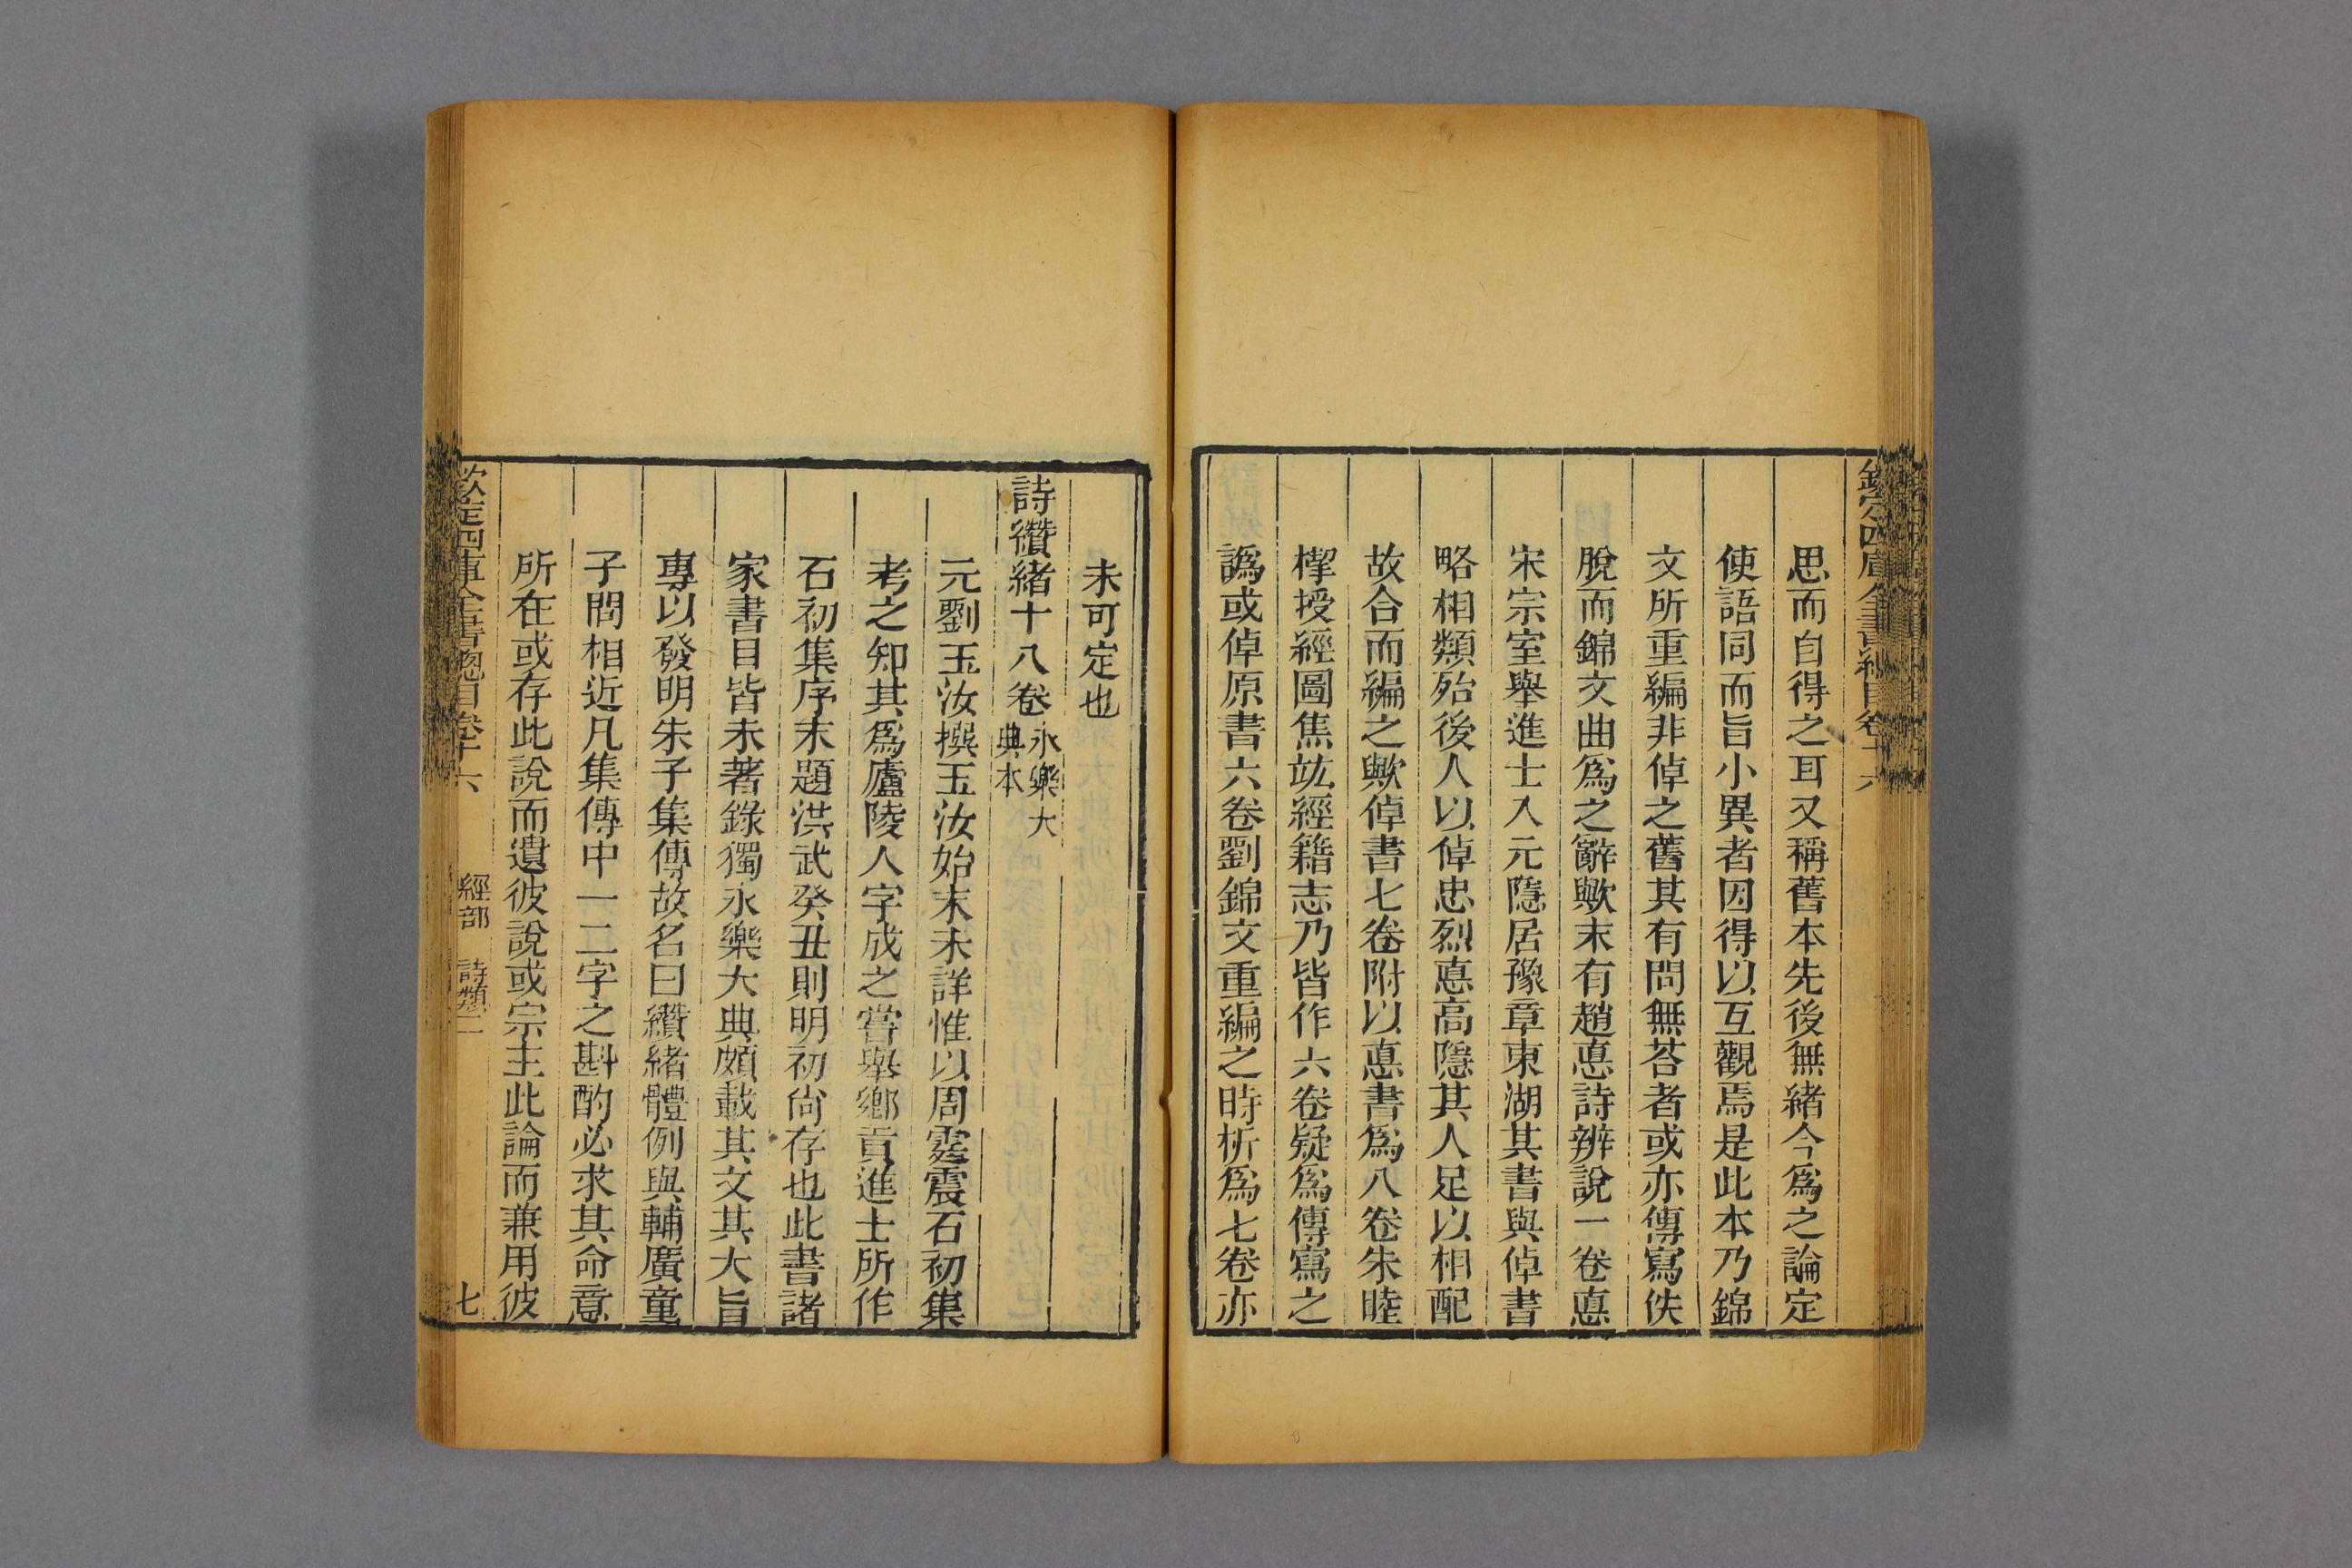 思而自得之耳又稱舊本先後無緒今爲之論定
使語同而旨小異者因得以互觀焉是此本乃錦
文所重編非倬之舊其有問無荅者或亦傳寫佚
脫而錦文曲爲之辭歟末有趙悳詩辨說一卷悳
宋宗室舉進士入元隱居豫章東湖其書與倬書
略相類殆後人以倬忠烈悳高隱其人足以相配
故合而編之歟倬書七卷附以悳書爲八卷朱睦
㮮授經圖焦竑經籍志乃皆作六卷疑爲傳寫之
譌或倬原書六卷劉錦文重編之時析爲七卷亦
未可定也
詩纘緒十八卷 永樂大
典本
元劉玉汝撰玉汝始末未詳惟以周霆震石初集
考之知其爲廬陵人字成之嘗舉鄉貢進士所作
石初集序末題洪武癸丑則明初尙存也此書諸
家書目皆未著錄獨永樂大典頗載其文其大旨
專以發明朱子集傳故名曰纘緒體例與輔廣童
子問相近凡集傳中一二字之斟酌必求其命意
所在或存此說而遺彼說或宗主此論而兼用彼
欽定四庫全書總目卷十六 經部 詩類二 七